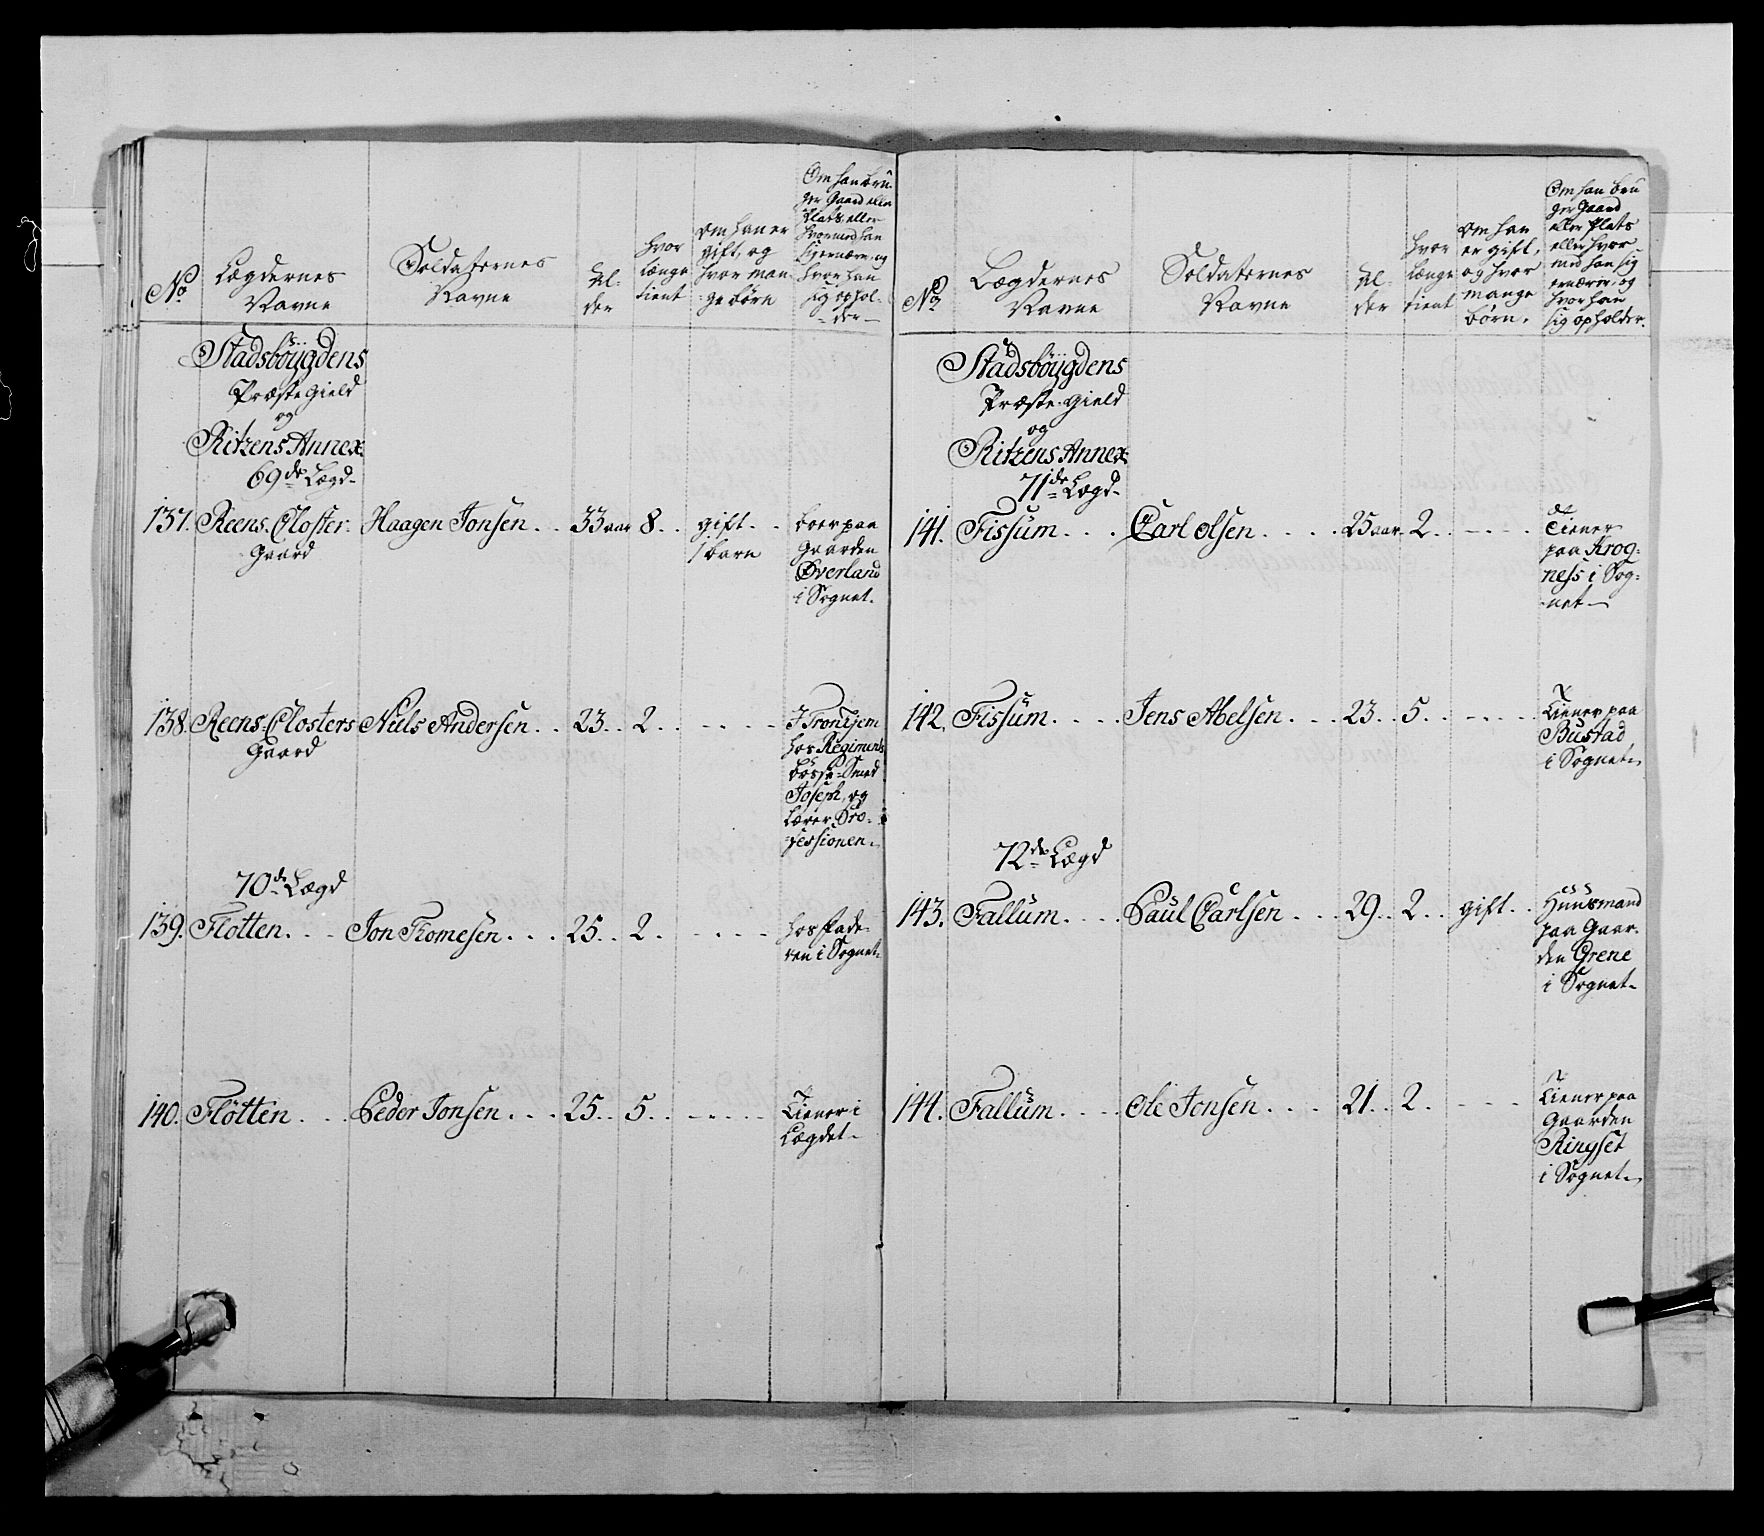 No
Lægdernes
Navne
Soldaternes
Navne
Al-
der
hvor
længe
tient
om han er
gift, og
hvor man-
ge börn
Om han bru-
ger Gaard eller
Plats eller
hvormed han
sig ernærer, og
hvor han
sig ophol-
der
Stadsböygdens
Præste Gield
og
Ritzens Annex
69de Lægd
137. Reens Closter Haagen Jonsen .. 33 aar 8 .. gift .. boer paa
Gaard 1 barn Gaarden
Overland
i Sognet.
138. Reens Closters Niels Andersen .. 23 .. 2 .. - - - - I Tronhjem
Gaard hos Regiments
bösse-Smed
Joseph, og
lærer Pro-
fessionen.
70de Lægd
139. Flotten . . . Jon Thomesen . . . 25 .. 2 .. - - - - hos Fade-
ren i Sognet
140. Flötten . . . Peder Jonsen . . . 25 .. 5 .. - - - - Tiener i
Lægdet.
No
Lægdernes
Navne
Soldaternes
Navne
Al-
der
hvor
længe
tient
om han
er gift,
og hvor
mange
börn.
Om han bru
ger Gaard
eller Plats
eller hvor-
med han sig
ernærer, og
hvor han
sig opholder.
Stadsböygdens
Præste-Gield
og
Ritzens Annex
71de Lægd
141. Fissum . . . Carl Olsen . . . . 25 aar. 2 .. - - - - Tiener
paa Krog-
ness i Sog-
net
142. Fissum . . . . Jens Abelsen . . . 23 .. 5 .. - - - - Tiener paa
Bustad
i Sognet
72de Lægd
143. Fallum . . . . Paul Carlsen . . . 29 .. 2 .. gift .. Huusmand
paa Gaar-
den Grene
i Sognet
144. Fallum . . . . Ole Jonsen . . . 21 .. 2 . - - - Tiener paa
Gaarden
Ringset
i Sognet